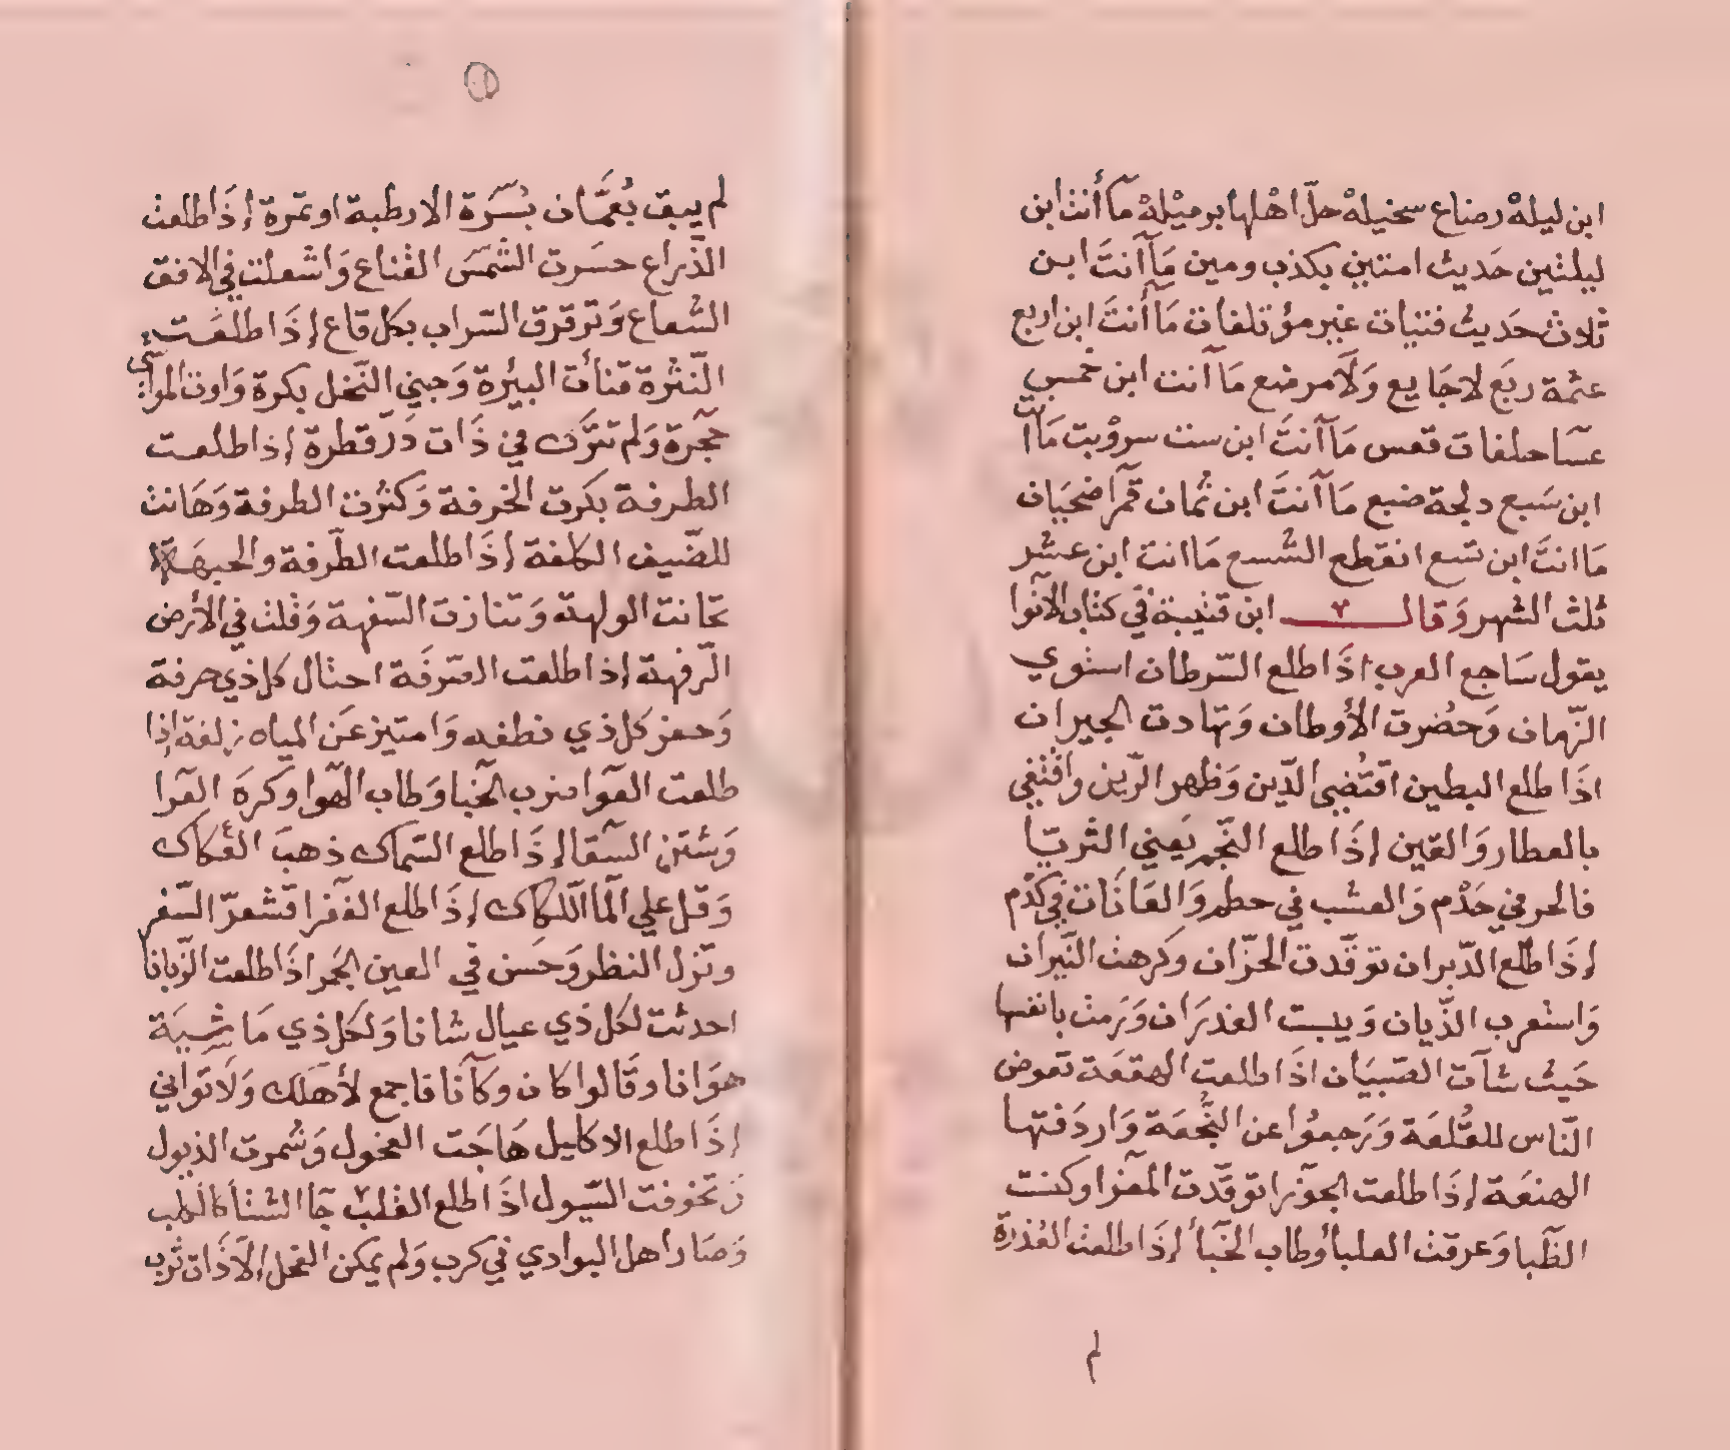 ابن ليلهْ رضاع سخيلهْ حلّ اهْلها برميْلهْ مآ أنت ابن
ليلتين حَديث امتين بكذب ومين مَآ آنتَ ابن
ثلاث حَديث فتيات غير مؤتلفات مَا أنتَ ابن اربع
عتمة ربَع لا جَايع وَلَا مرضع مَا آنت ابن خمس
عشَا حلفات قعس مَا آنتَ ابن ست سروْبت مَا أنت
ابن سَبع دلجة ضبع مَا آنتَ ابن ثمان قمرآ ضحيَان
مَا انتَ ابن تسع انقطع الشسع مَا انت ابن عشر
ثلث الشهر وَقال ابن قتيبة في كتاب الآنوا
يقول سَاجع العرب اذَا طلع السّرطان استوي
الزّمان وَحضُرت الأوطان وَتهادت الجيران
اذَا طلع البطين اقتُضِي الدّين وَظهر الزّين واقتُفي
بالعطار وَالقين إذَا طلع النّجم يَعني الثريّا
فالحر في حَدْم وَالعشب في حطم وَالعَانَات في كدْم
إذَا طلع الدّبران توقّدت الحزّان وكرهت النّيران
وَاستعرب الذّبان وَيبست الغدرَان وَرَمت بانفسها
حَيث شآت الصّبيَان اذَا طلعت الهقعَة تقوض
النّاس للقُلعَة وَرَجعوُا عن النُّجعَة وَاردَفتها
الهنعَة إذَا طلعت الجوزا توقّدت المعزا وكنست
الظّبا وَعرقت العلبا وطاب الخبا إذَا طلعت العُذرة
لم
لم يبق بُعمَان بسَرة الا رطبة او تمرة إذَا طلعت
الذّراع حسَرت الشّمسَ القناع وَاشعلت في الافق
الشعاع وَترقرق السّراب بكل قاع إذَا طلعَت
النّثرة قنأت البسُرة وَجني النّخل بكرة وَاوت المواشي
حجَرة وَلم تترك في ذَات دَرّ قطرة إذا طلعت
الطرفة بكرت الخرفة وَكثرت الطرفة وَهَانت
للضّيف الكلفة إذَا طلعت الطّرفة والجبهَة
تحانت الولهة وَتنازت السّفهة وَقلت في الأرض
الرّفهة إذا طلعت الصّرفَة احتال كل ذي حرفة
وَحفز كل ذي نطفه وَامتيز عَن المياه زلفة إذا
طلعت العوّا ضرب الخبا وَطاب الهوا وَكرهَ العرا
وَشنن السّقا إذَا طلع السّماك ذهبَ العكاك
وَقل علي المآ اللكاك إذَا طلع الغفر اقشعرّ السّفر
وتزل النظر وَحسَن في العين الجَمر اذَا طلعت الزّبانا
احدثت لكل ذي عيال شانا وَلكل ذي مَاشيَة
هوَانا وقَالوا كان وكآنا فاجمع لأهلك وَلَا تواني
إذَا طلع الاكليل هَاجَت الفحول وَشمرت الذيول
وَتخوفت السّيول اذَا طلع القلب جآ الشتا كالكلب
وَصَار اهل البوادي في كرب وَلم يمكن الفحل إلّا ذَات ثرب